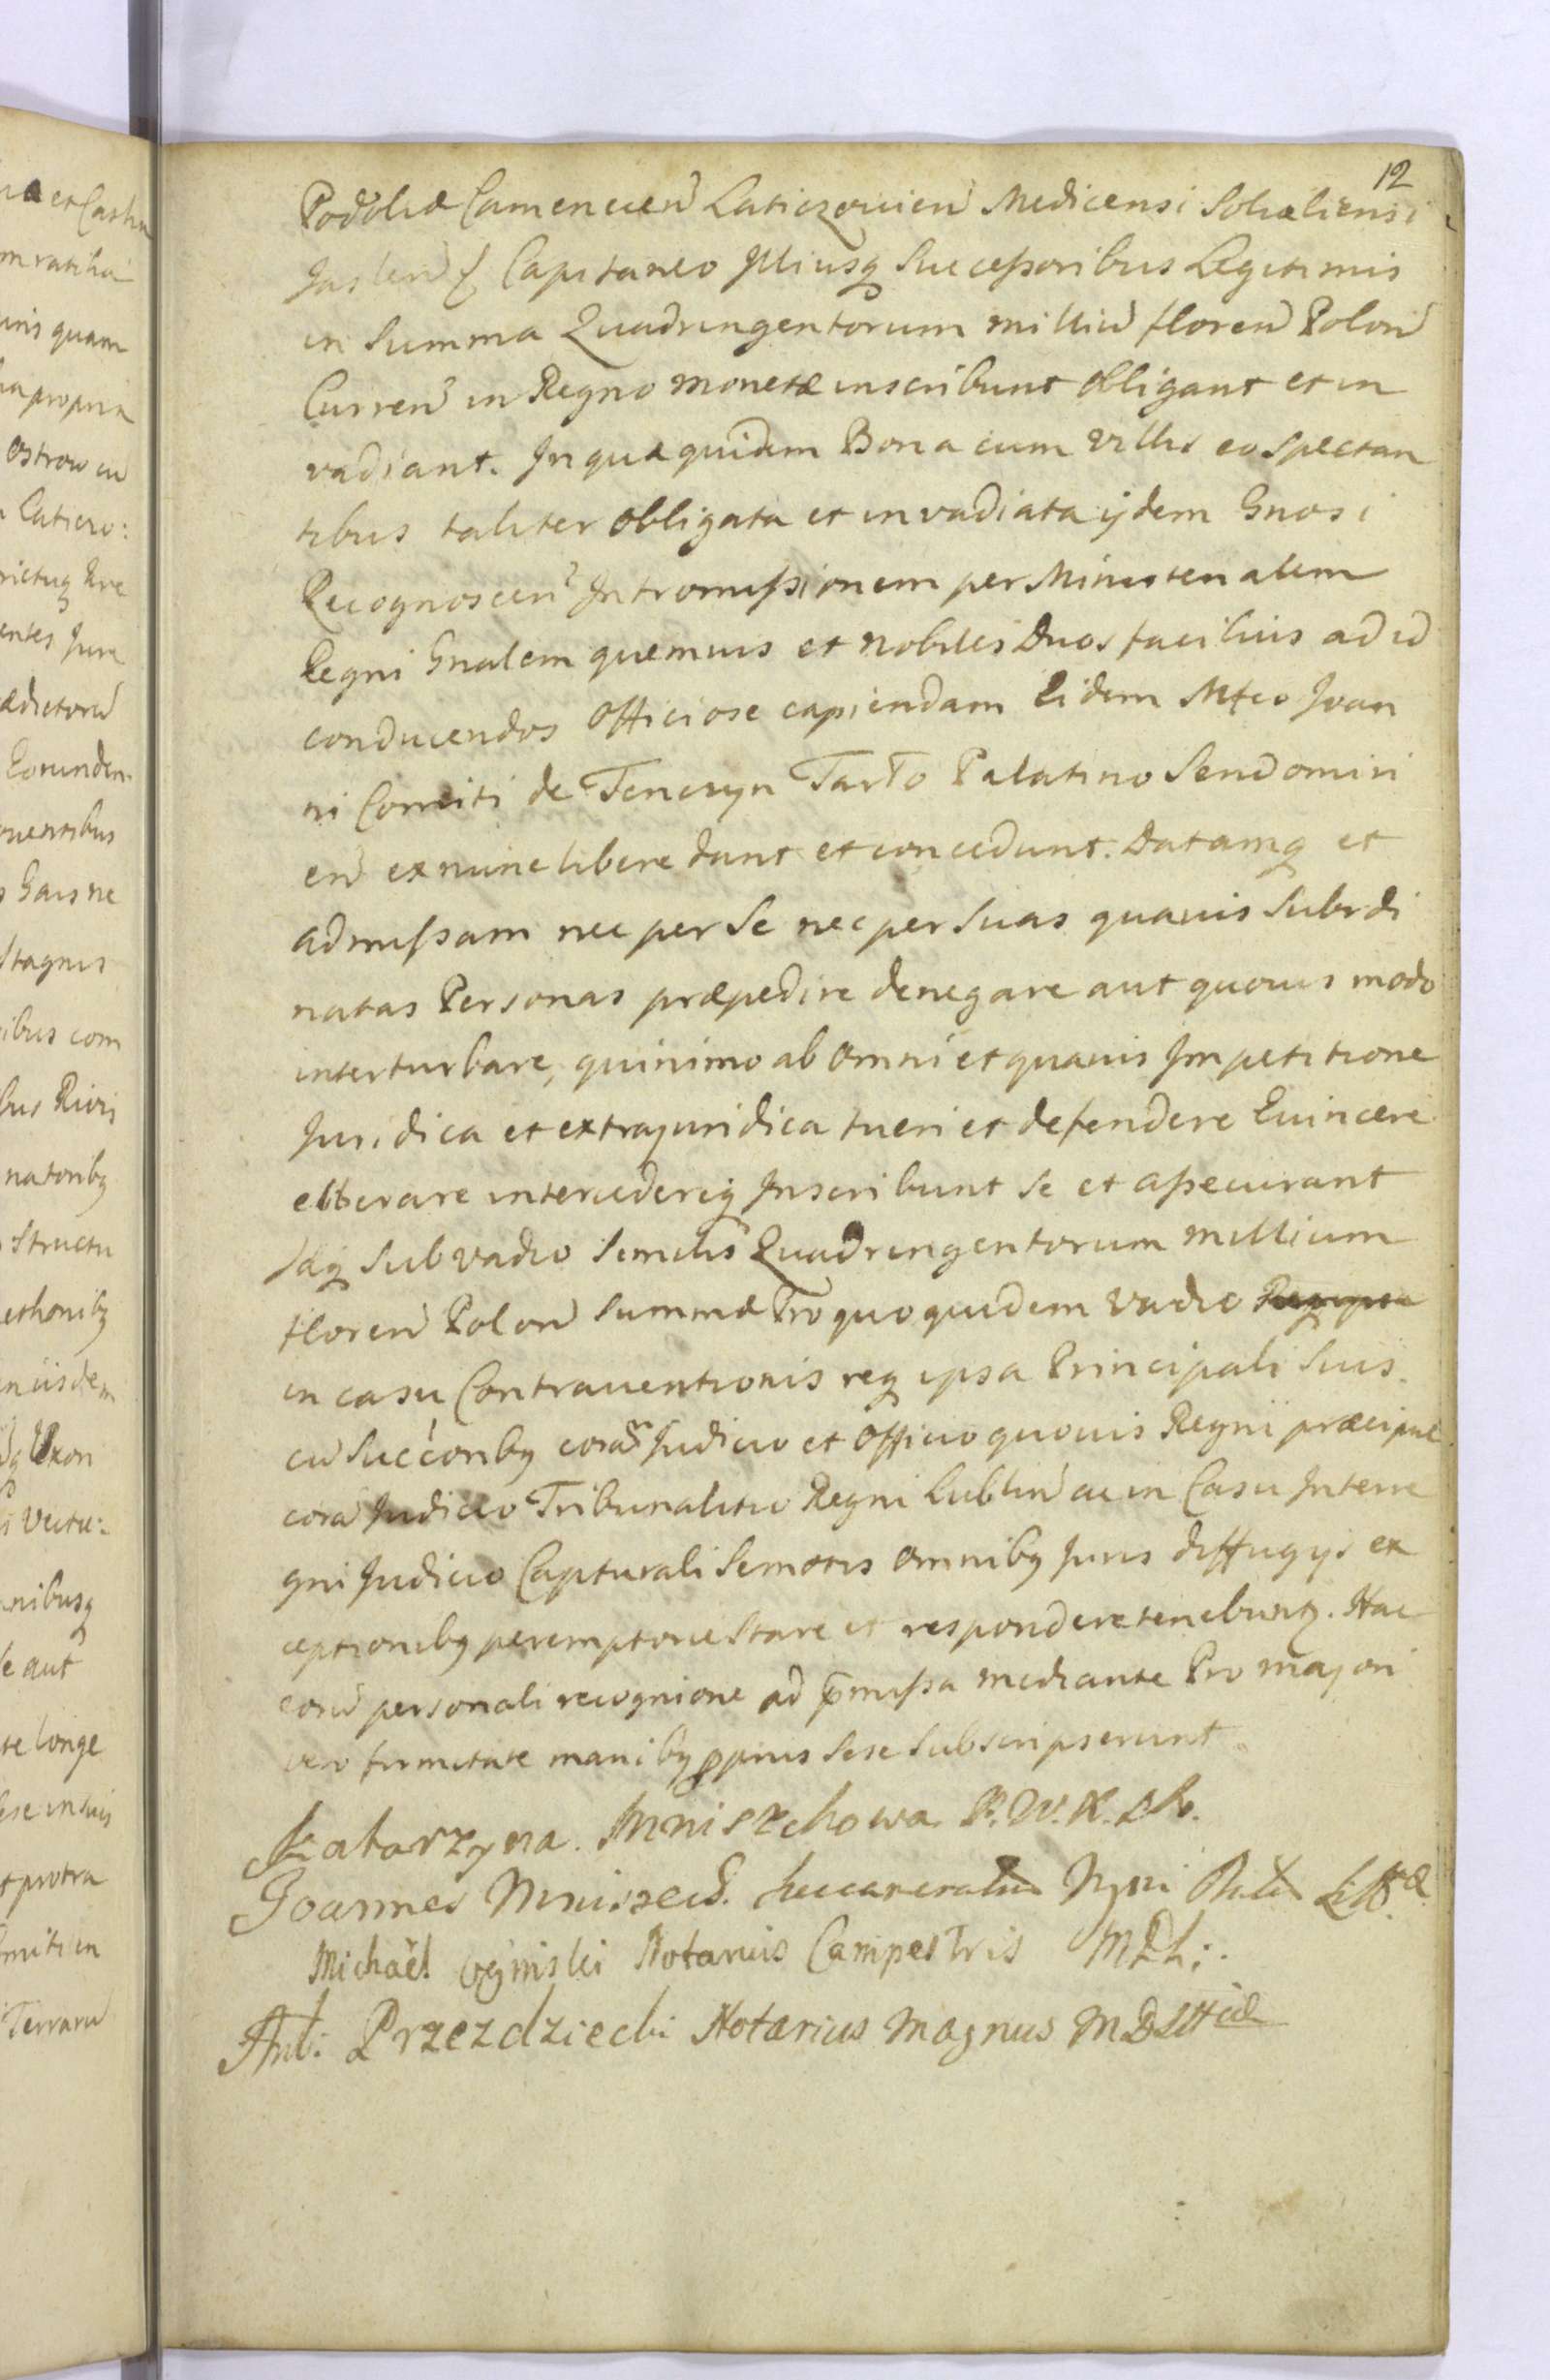 12
Podoliæ Camenecen Laticzovien Medicensi Sokaliensi
Jaslen & Capitaneo Illiusq Successoribus Legitimis
in Summa Quadringentorum milliu floren Polon
Curren in Regno monetæ inscribunt obligant et in
vadiant. In quæ quidem Bona cum Villis eo spectan
tibus taliter obligata et invadiata ijdem Gnosi
Recognoscen Intromissionem per Ministerialem
Regni Gnalem quemvis et nobiles Duos facilius ad id
conducendos officiose capiendam Eidem Mfco Joan
ni Comiti de Tenczyn Tarło Palatino Sendomiri
en ex nunc libere dant et concedunt. Datamq et
admissam nec per Se nec per Suas quavis Subordi
natas Personas præpedire denegare aut quovis modo
interturbare, quinimo ab omni et quavis Impetitione
Juridica et extrajuridica tueri et defendere Evincere
elberare intercedereq Inscribunt se et assecurant
Idq Sub vadio Similis Quadringentorum millium
floren Polon Summæ Pro quo quidem Vadio
in casu Contraventionis req ipsa Principali Suis
cu Succoribq cora Judicio et Officio quovis Regni præcipue
cora Judicio Tribunalitio Regni Lublin ac in Casu Interre
gni Judicio Capturali Semotis omnibq Juris diffugijs ex
ceptionibq peremptorie Stare et respondere tenebuntr. Hac
eoru personali recognione ad pmissa mediante Pro majori
vero firmitate manibq pprijs sese Subscripserunt
Katarzyna Mniszchowa P. W. X. L.
Joannes Mniszech Succamerarius
Michaël Ogiński Notarius Campestris MDL:.
Ant: Przezdziecki Notarius Magnus MDLttiæ